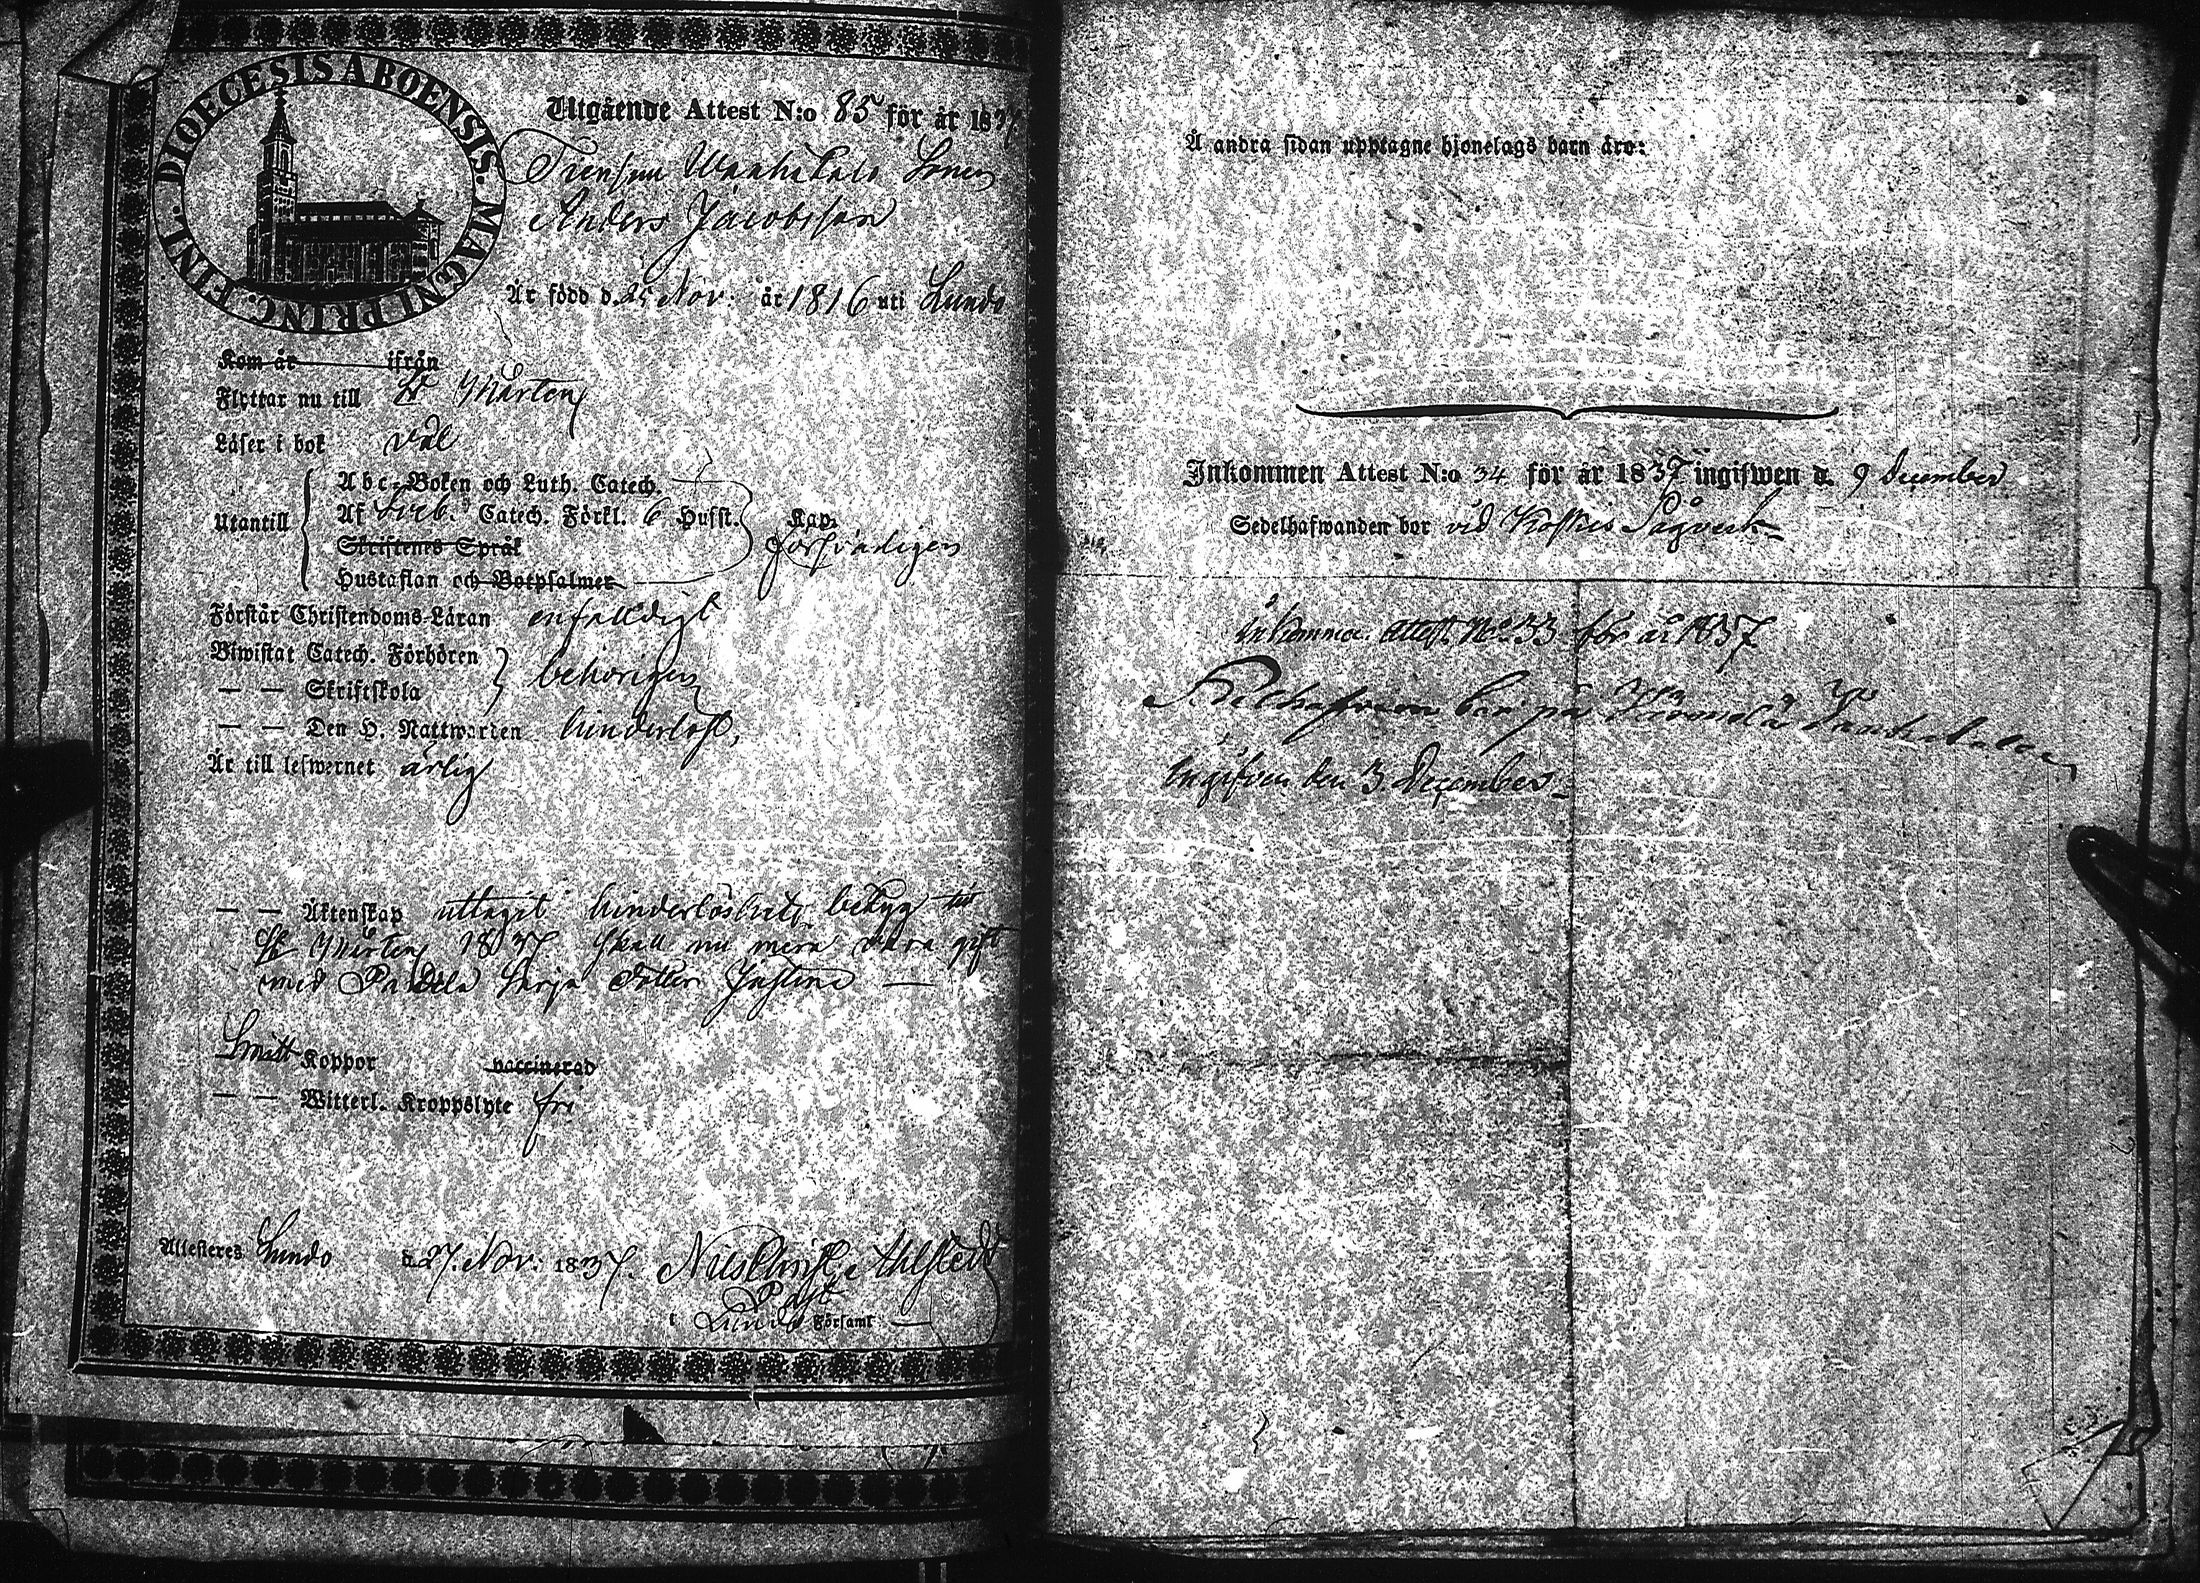 DIOECESIS ABOENSIS. MAGNI PRINC. FINL.
Utgående Attest N:o 85 för år 1837
Wanhatalo Sonen
Anders Jacobsson
Är född d. 25 Nov. år 1816 uti Lundo
Kom år ifrån
Flyttar nu till St Mårtens
Läser i bok väl
Utantill
Abc-Boken och Luth. Catech.
Af Sveb. Catech. Förkl. 6 Hufst. Kap.
Skriftenes Språk försvarligen
Hustaflan och Botpsalmer
Förstår Christendoms-Läran enfalldigt
Biwistat Catech. Förhören
— — Skriftskola behörigen
— — Den H. Nattwarden hinderlöst,
Är till lefwernet ärlig
— — Äktenskap uttagit hinderlöshets betyg till
St Mårtens 1837. skall nu mera vara gift
med Dotter Justina —
Smitt Koppor vaccinerad
— — Witterl. Kroppslyte fri
Attesteras Lundo d. 27. Nov. 1837. Nils Christ. Ahlstedt
i Lundo Församl.
Å andra sidan upptagne hjonelags barn äro:
Inkommen Attest N:o 34 för år 1837 ingifwen d. 9 December
Sedelhafwanden bor vid Koskis Sågverk
Inkommen attest No 33 för år 1837
bor på
Ingifven den 3. December